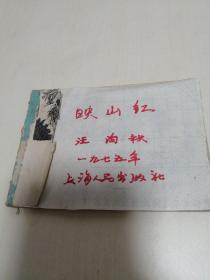 映山红
汪洵秋
一九七五年
上海人民出版社